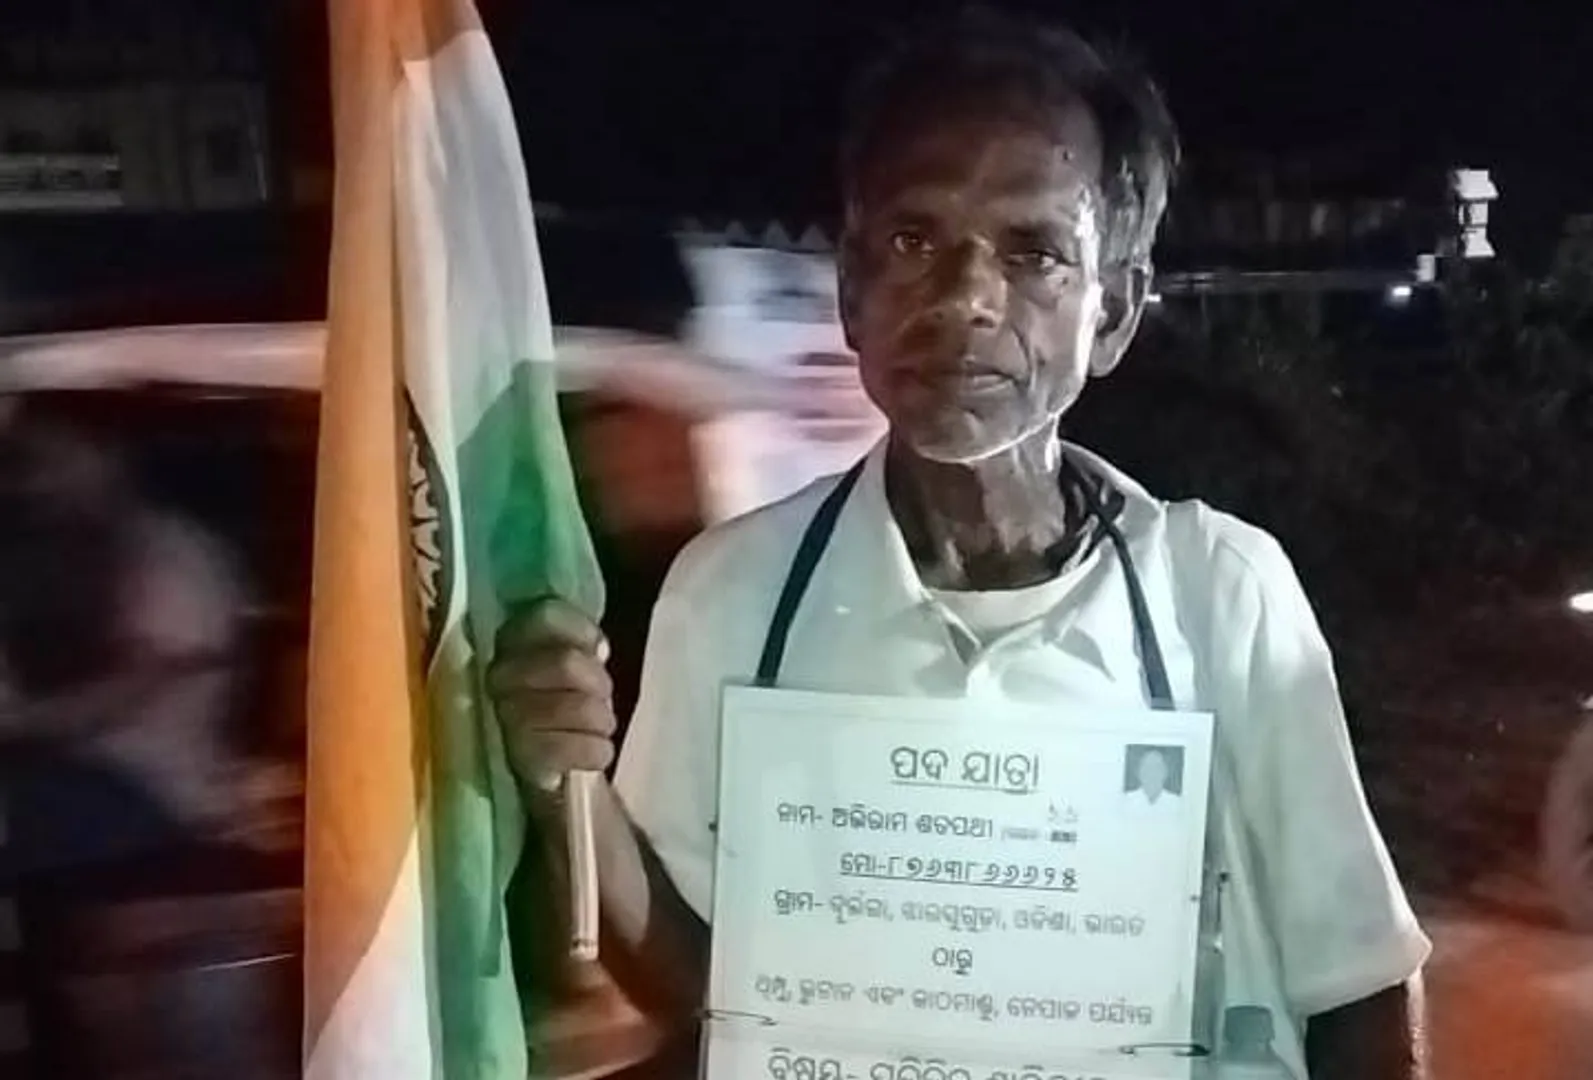 ପଦ ଯାତ୍ରା
ନାମ- ଅଭିରାମ ଶତପଥୀ
ମୋ-୮୭୬୩୮୬୬୬୨୫
ଗ୍ରାମ- ଦୁର୍ଲଗା, ଝାରସୁଗୁଡା, ଓଡିଶା, ଭାରତ
ଠାରୁ
ଥିମ୍ପୁ, ଭୁଟାନ ଏବଂ କାଠମାଣ୍ଡୁ, ନେପାଳ ପର୍ଯ୍ୟନ୍ତ
ବିଷୟ-